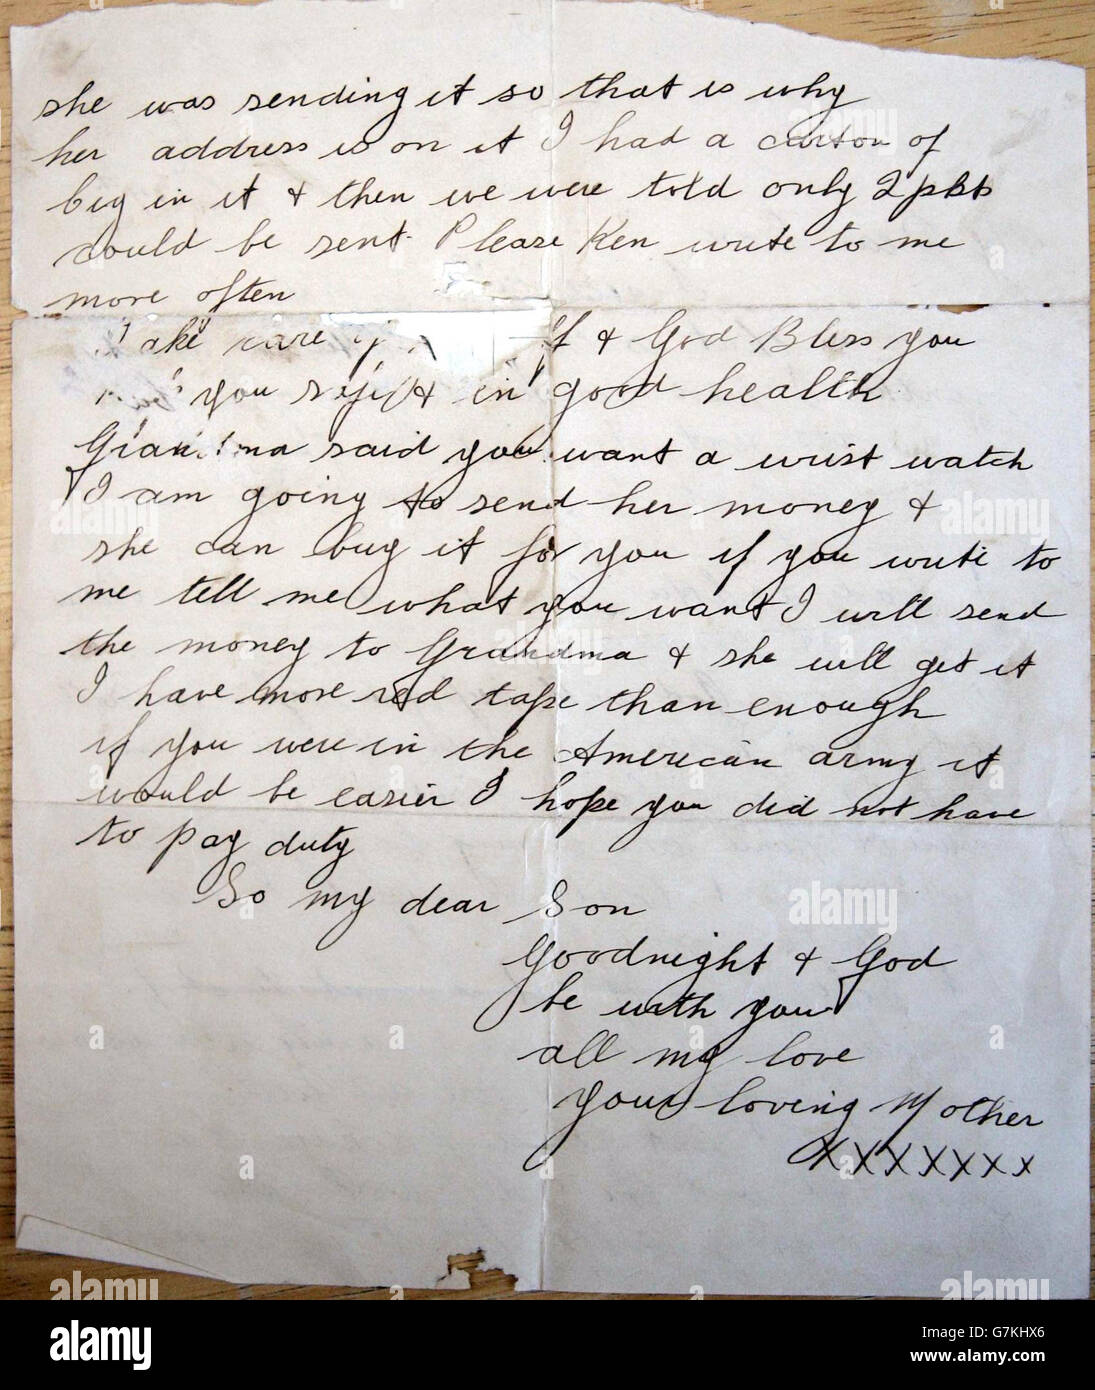 she was sending it so that is why
her address is on it I had a carton of
big in it & then we were told only 2 pkts
could be sent. Please Ken write to me
more often
Take care of & God Bless you
you safe & in good health
Grandma said you want a wrist watch
I am going to send her money &
she can buy it for you if you write to
me tell me what you want I will send
the money to Grandma & she will get it
I have more red tape than enough
if you were in the American army it
would be easier I hope you did not have
to pay duty
So my dear Son
Goodnight & God
be with you
all my love
Your loving Mother
XXXXXXX
alamy
Image ID: G7KHX6
www.alamy.com